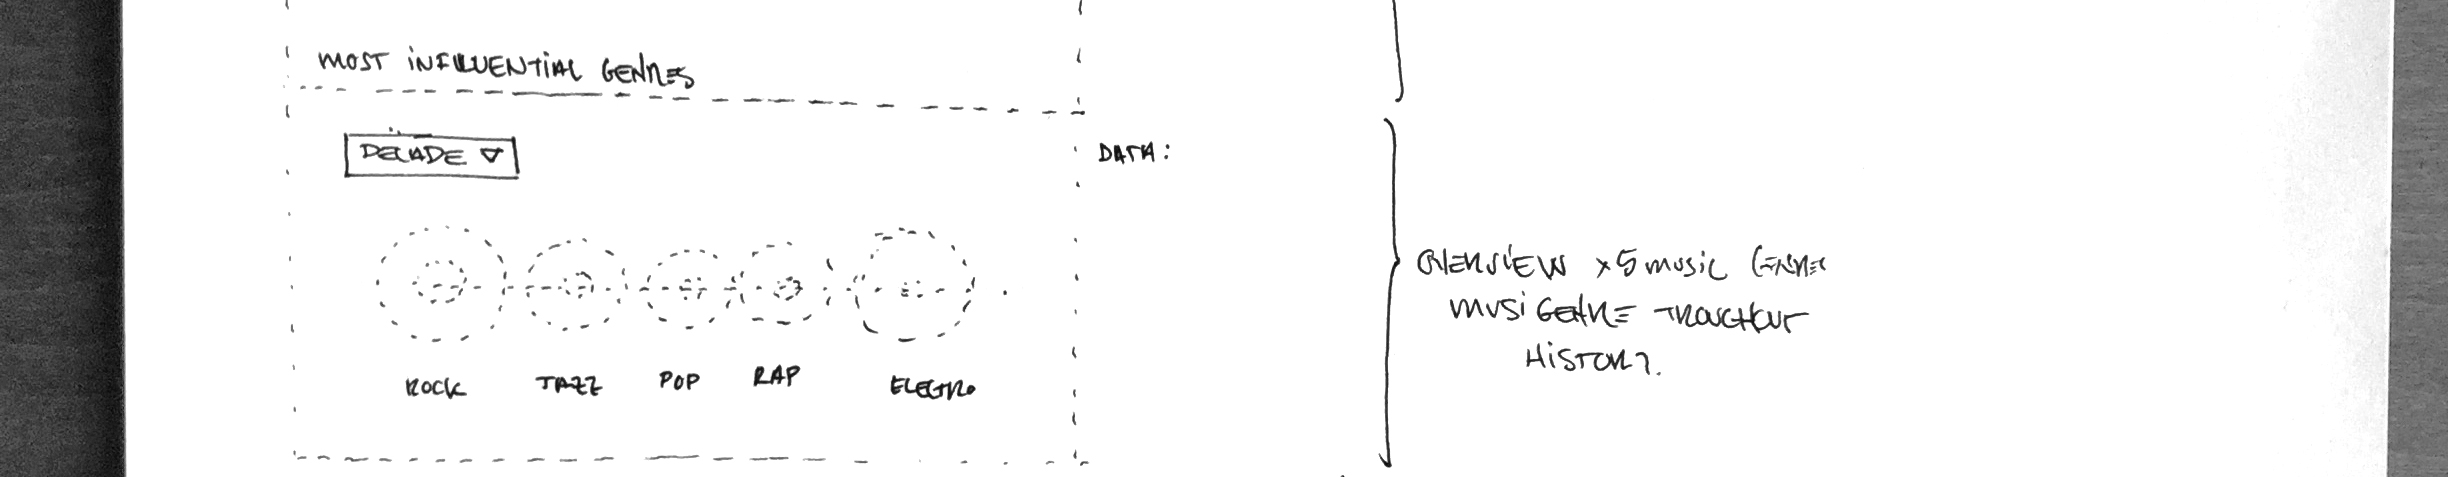 MOST INFLUENTIAL GENRES
DECADE
DATA:
ROCK JAZZ POP RAP ELECTRO
OVERVIEW x5 MUSIC GENRE
MUSI GENRE TROUGHOUT
HISTORY.